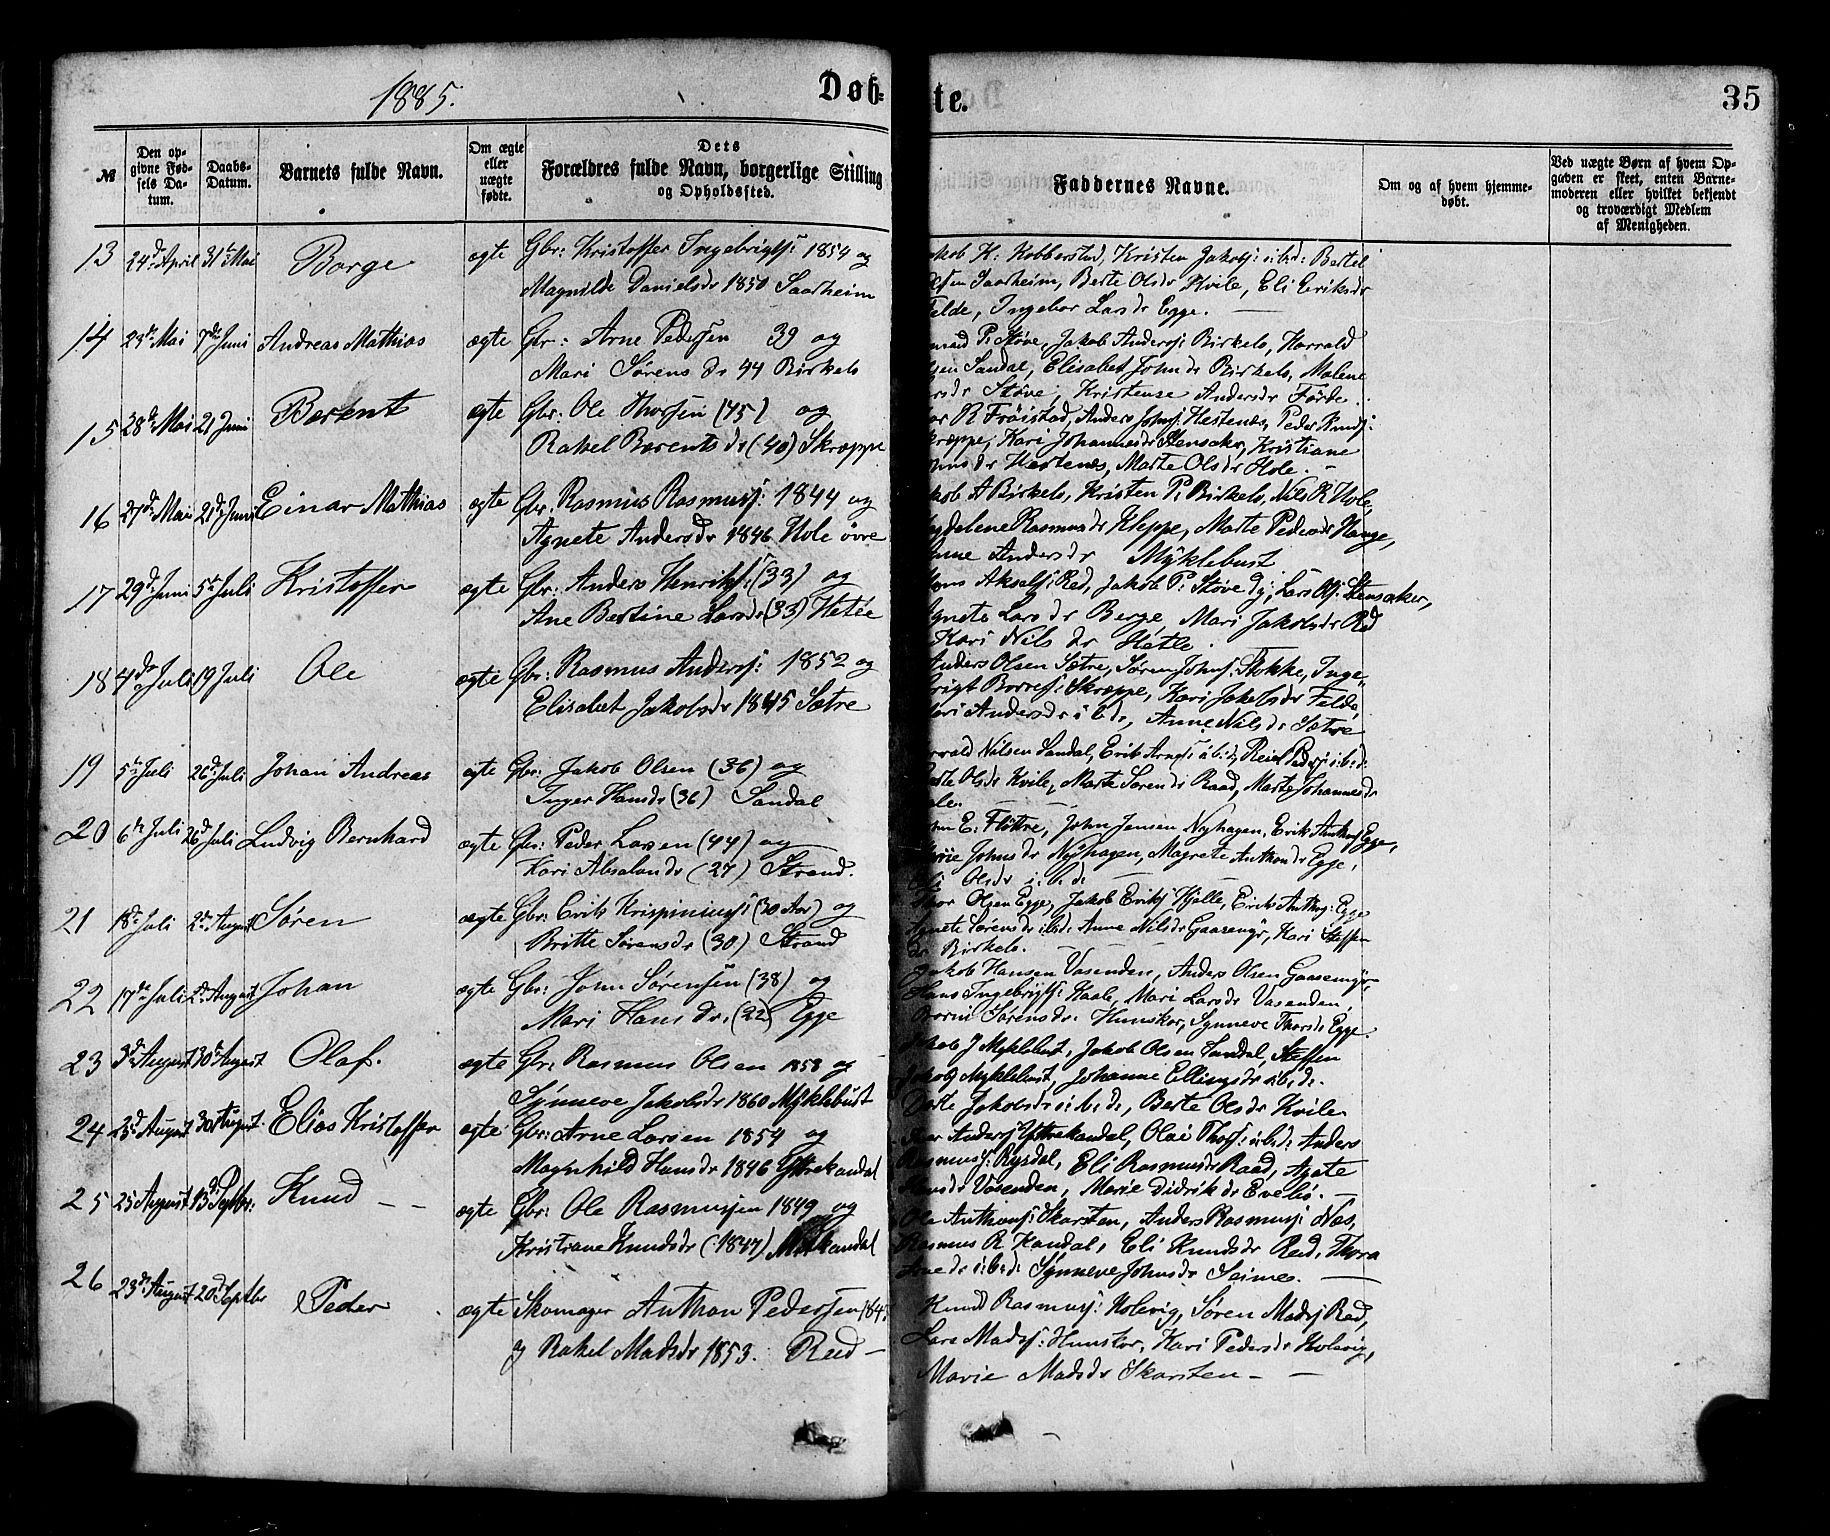 1885.
Døb-
te.
35
№
Den op-
givne Fød-
sels Da-
tum.
Daabs-
Datum.
Barnets fulde Navn.
Om ægte
eller
uægte
fødte.
Dets
Forældres fulde Navn, borgerlige Stilling
og Opholdssted.
Faddernes Navne.
Om og af hvem hjemme-
døbt.
Ved uægte Børn af hvem Op-
gaven er skeet, enten Barne-
moderen eller hvilket bekjendt
og troværdigt Medlem
af Menigheden.
13 24de April 31te Mai Borge ægte Gbr: Kristoffer Ingebrigts: 1854 og
Magnilde Danielsdr 1850 Saarheim
Jakob K: Kobberstad, Kristen Jakobs: ibid: Bertel
Olsen Saarheim, Berte Olsdr Kvile, Eli Eriksdr
Felde, Ingebor Larsdr Egge.
14 29de Mai 7de Juni Andreas Mathias ægte Gbr: Arne Pedersen 39 og
Mari Sørensdr 44 Birkelo
P: Støve, Jakob Anders: Birkelo, Harrald
Sandal, Elisabet Johnsdr Birkelo, Malene
Støve, Kristense Andersdr Førde.
15 28de Mai 21 Juni Berent ægte Gbr: Ole Thorsen (45) og
Rakel Berentsdr (40) Skrøppe
R Frøistad, Anders Johns: Hestenes, Peder Knuds:
Skrøppe, Kari Johannesdr Stensaker, Kristiane
Hestenes, Marte Olsdr Hole.
16 27de Mai 21de Juni Einar Mathias ægte Gbr: Rasmus Rasmuss: 1844 og
Agnete Andersdr 1846 Hole øvre
Jakob A Birkelo, Kristen P: Birkelo, Nils R Hole,
Magdelene Rasmusdr Kleppe, Marte Pedersdr Hauge,
Anne Andersdr Myklebust
17 29de Juni 5te Juli Kristoffer ægte Gbr: Anders Henriks: (33) og
Ane Bertine Larsdr (33) Hetle
Mons Aksels: Red, Jakob P: Støve dy, Lars Ols: Stensaker,
Agnete Larsdr Berge, Mari Jakobsdr Red
Kari Nilsdr Hetle.
18 4de Juli 19 Juli Ole ægte Gbr: Rasmus Anders: 1852 og
Elisabet Jakobsdr 1845 Sætre
Anders Olsen Sætre, Søren Johns: Stokke, Inge-
brigt Borres: Skrøppe, Kari Jakobsdr Felde,
Mari Andersdr ibid, Anne Nilsdr Sætre
19 5te Juli 26de Juli Johan Andreas ægte Gbr: Jakob Olsen (36) og
Inger Hansdr (36) Sandal
Harrald Nilsen Sandal, Erik Arnes: ibid, Reier Peders: ibid:
Berte Olsdr Kvile, Marte Sørensdr Raad, Marte Johannesdr
20 6te Juli 26de Juli Ludvig Bernhard ægte Gbr: Peder Larsen (44) og
Kari Absalonsdr (27) Strand.
E: Fløttre, John Jensen Nyhagen, Erik Anthons: Egge,
Johnsdr Nyhagen, Magrete Anthonsdr Egge,
Eli Olsdr ibid:
21 18de Juli 2den August Søren ægte Gbr: Erik Krispinius: (30 Aar) og
Britte Sørensdr (30) Strand
Thor Olsen Egge, Jakob Eriks: Hjelle, Erik Anthons: Egge
Agnete Sørensdr ibid: Anne Nilsdr Gaasemyr, Kari Steffen
dr Birkelo.
22 17de Juli 2d August Johan ægte Gbr: John Sørensen (38) og
Mari Hansdr. (22) Egge
Jakob Hansen Vasenden, Anders Olsen Gaasemyr,
Hans Ingebrigts: Kaale, Mari Larsdr Vasenden,
Sørensdr: Hunskor, Synneve Thorsdr Egge.
23 3de August 30te August Olaf. ægte Gbr: Rasmus Olsen 1858 og
Synneve Jakobsdr 1860 Myklebust
Jakob J Myklebust, Jakob Olsen Sandal, Steffen
Myklebust, Johanne Ellingsdr ibid.
Dorte Jakobsdr ibid, Berte Olsdr Kvile
24 23de August 30te August. Elias Kristoffer ægte Gbr: Arne Larsen 1854 og
Magnhild Hansdr 1846 Ytrekandal
Anders: Yttrekandal, Olai Thors: ibid: Anders
Rasmuss: Rysdal, Eli Rasmusdr Raad, Agate
Hansdr Vasenden, Marie Didrikdr Evebø.
25 25 August 13de Septbr: Knud ægte Gbr: Ole Rasmussen 1849 og
Kristiane Knudsdr (1847) Mikandal
Ole Anthons: Skarsten, Anders Rasmuss: Nos,
Rasmus R Kandal, Eli Knudsdr Red, Thora
ibid: Synneve Johnsdr Seimes.
26 23de August 20de Septbr Peder ægte Skomager Anthon Pedersen 184
og Rakel Madsdr 1853. Reed
Knud Rasmuss: Holevig, Søren Mads: Red,
Lars Mads: Hunskor, Kari Pedersdr Holevig,
Marie Madsdr Skarsten